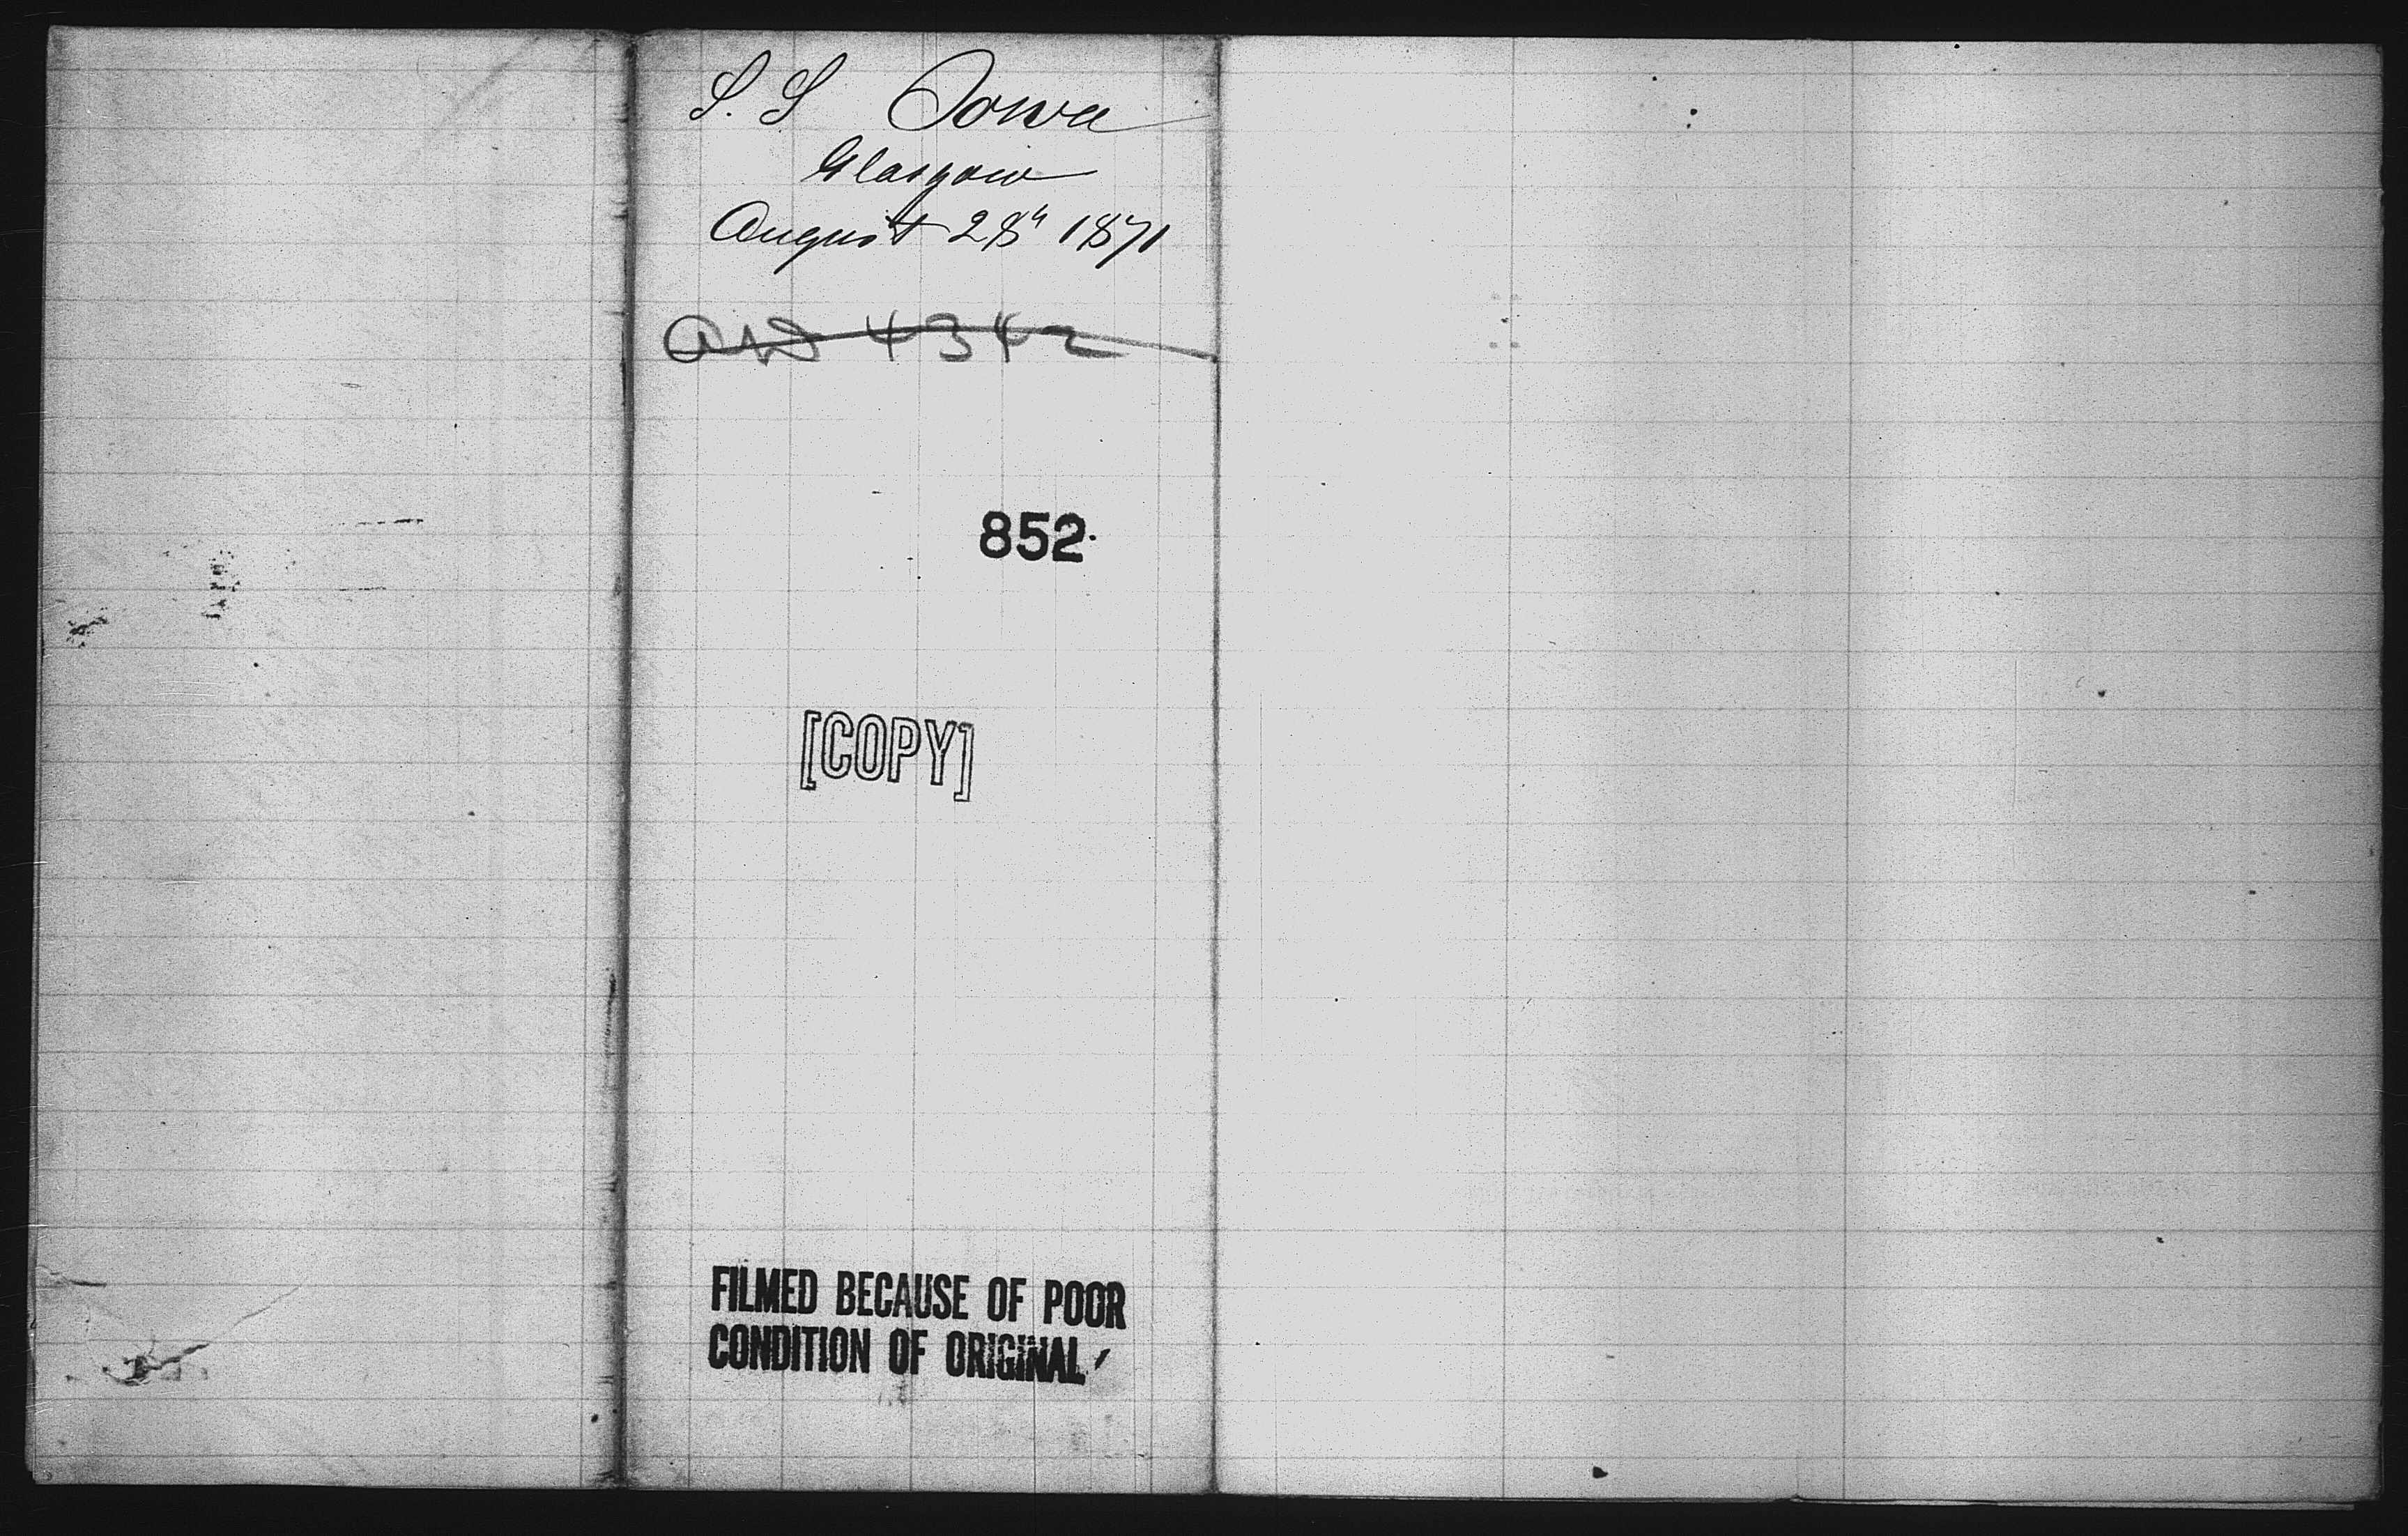 S. S Iowa
Glasgow
August 28th 1871
4342
852
[COPY]
FILMED BECAUSE OF POOR
CONDITION OF ORIGINAL